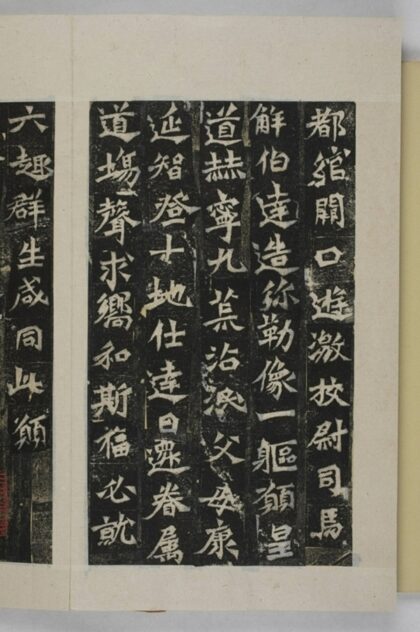 都綰闕口遊激校尉司馬
解伯達造弥勒像一軀願皇
道赫寧九荒沾泯父母康
延智登十地仕達日遷眷属
道場聲求嚮和斯福必就
六趣群生咸同此願